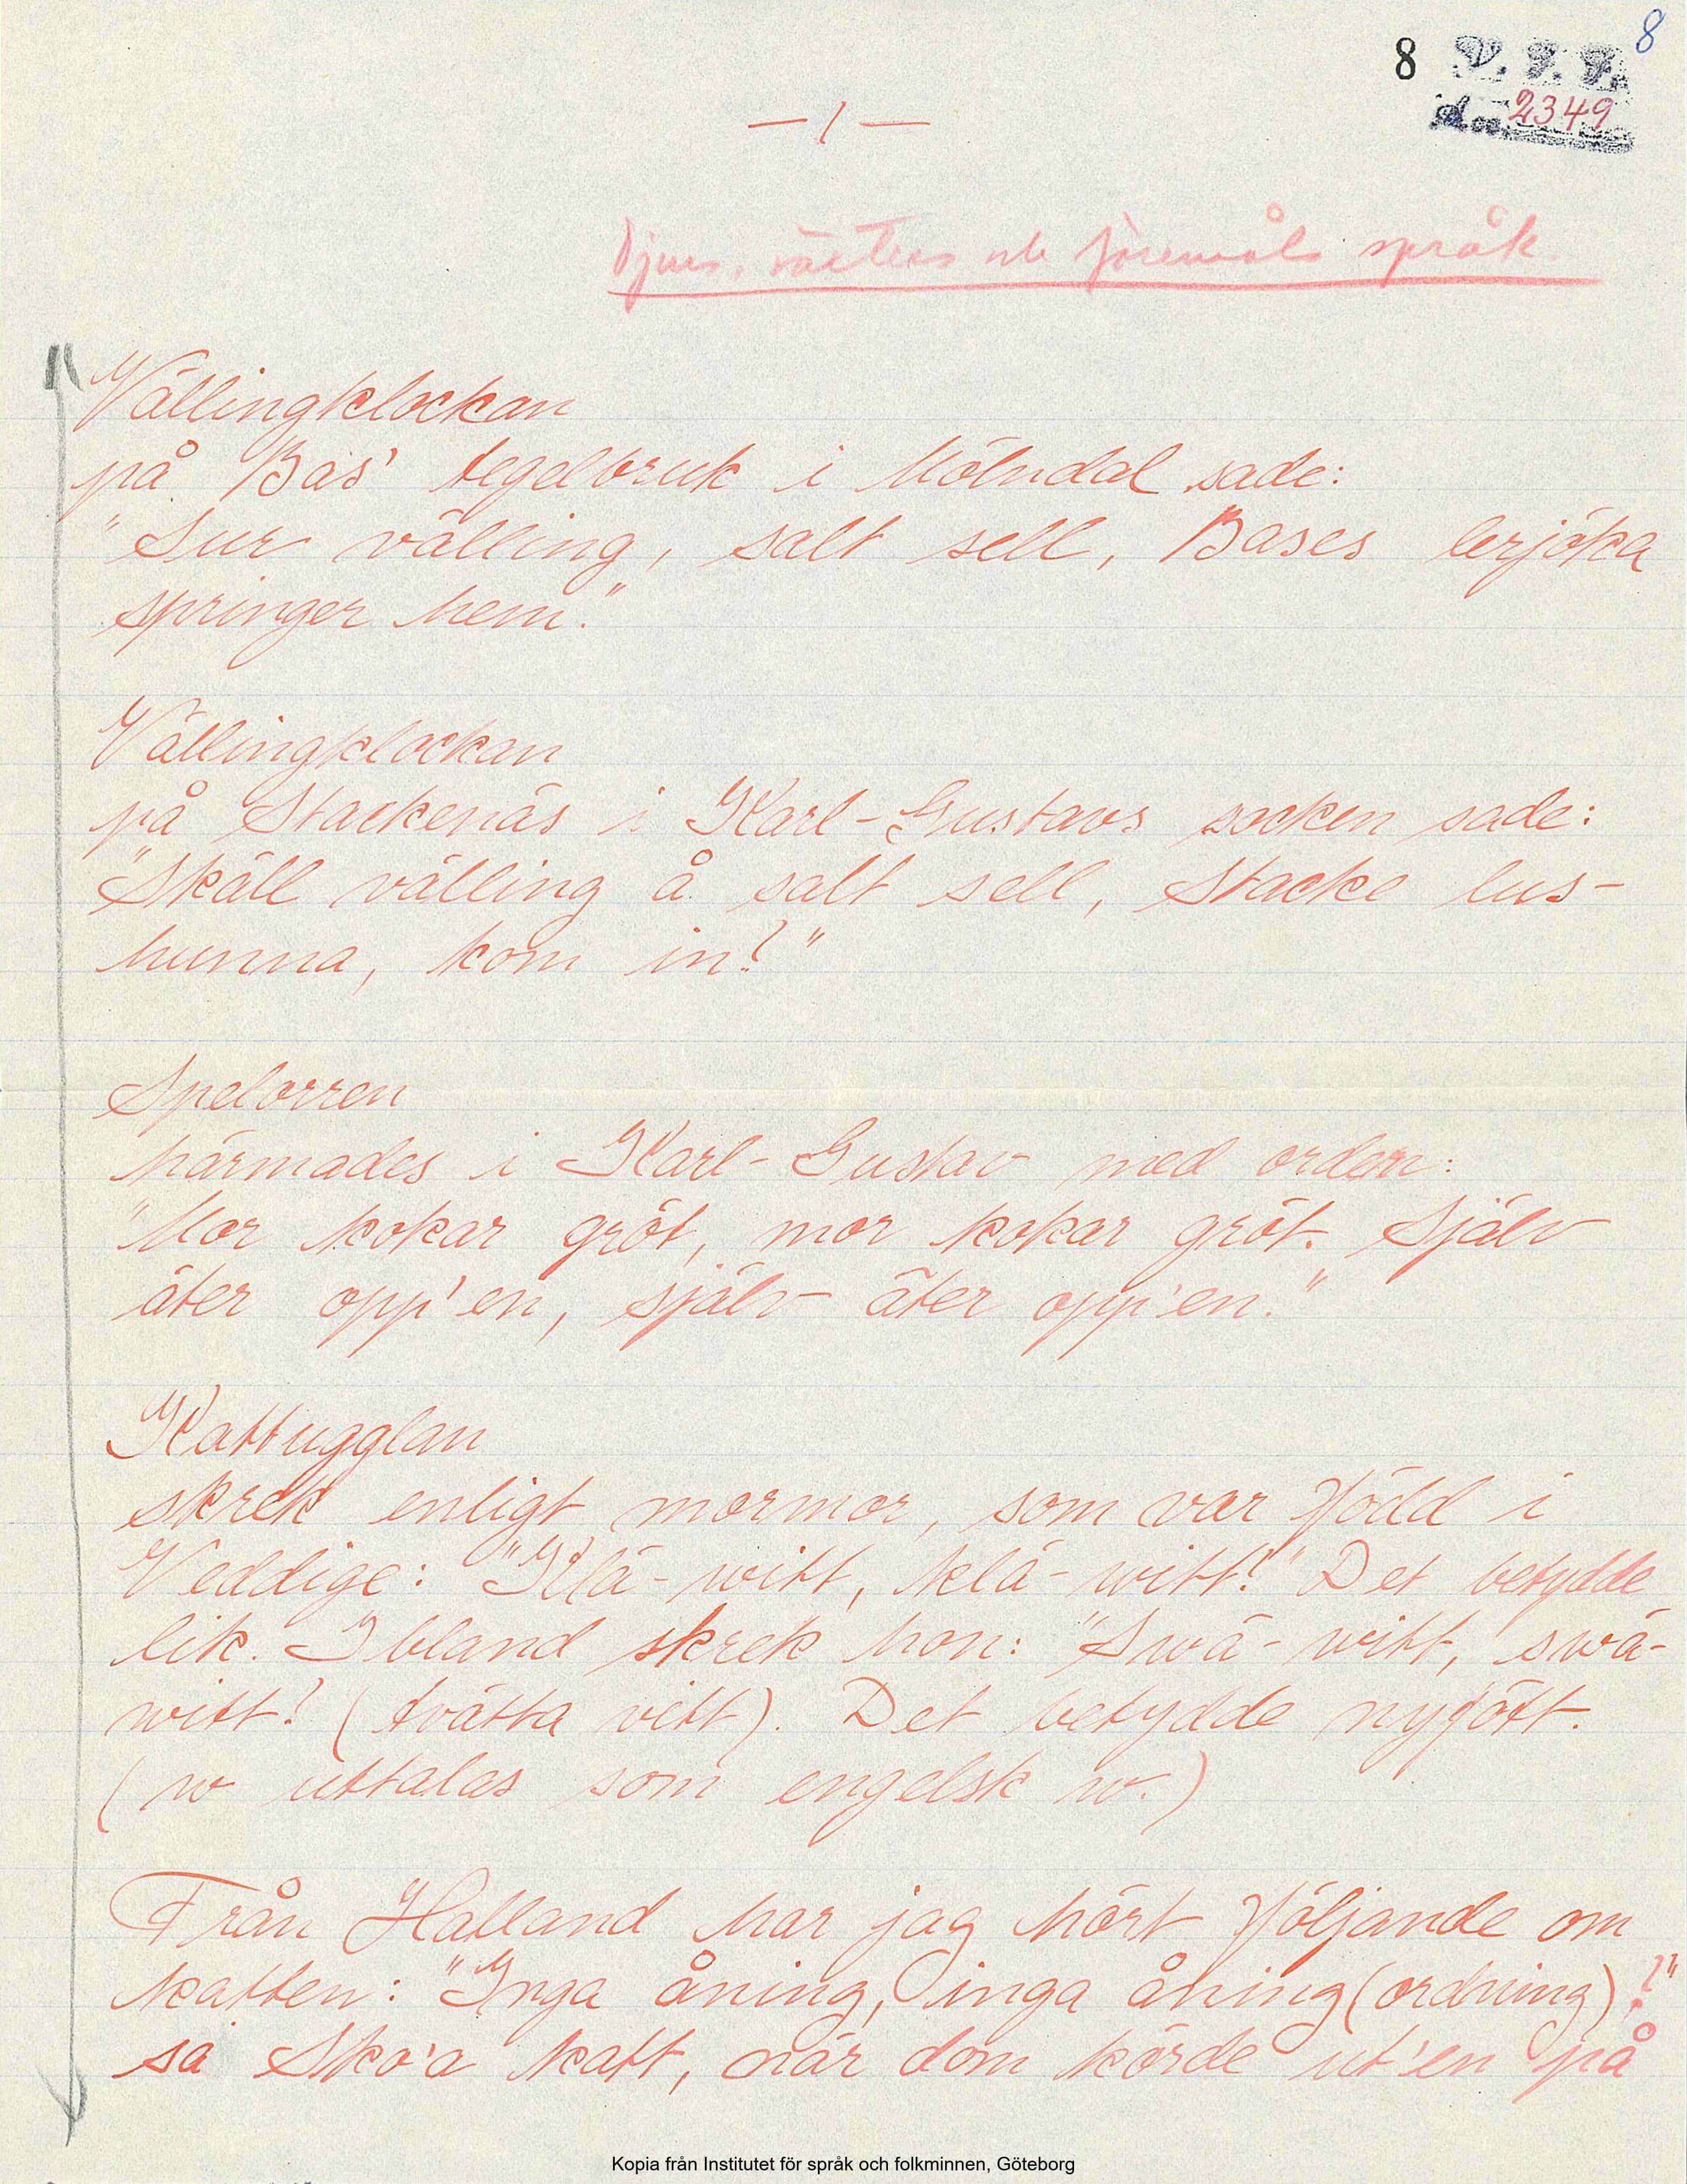 8 V. F. F. 8
Acc. 2349
— 1 —
Djurs, växters och föremåls språk.
Vällingklockan
på Bas' tegelbruk i Mölndal sade:
"Sur välling, salt sell, Bases lerjöka
springer hem."
Vällingklockan
på Stackenäs i Karl-Gustavs socken sade:
"Skäll välling å salt sell, Stacke lus-
hunna, kom in!"
Spelorren
härmades i Karl-Gustav med orden:
"Mor kokar gröt, mor kokar gröt. Själv
äter opp'en, själv äter opp'en."
Kattugglan
skrek enligt mormor, som var född i
Veddige: "Klä-witt, klä-witt!" Det betydde
lik. Ibland skrek hon: "Swä-witt, swä-
witt! (tvätta vitt). Det betydde nyfött.
(w uttalas som engelsk w.)
Från Halland har jag hört följande om
katten: "Inga åning, inga åning (ordning)!"
sa Sko'a katt, när dom körde ut'en på
Kopia från Institutet för språk och folkminnen, Göteborg